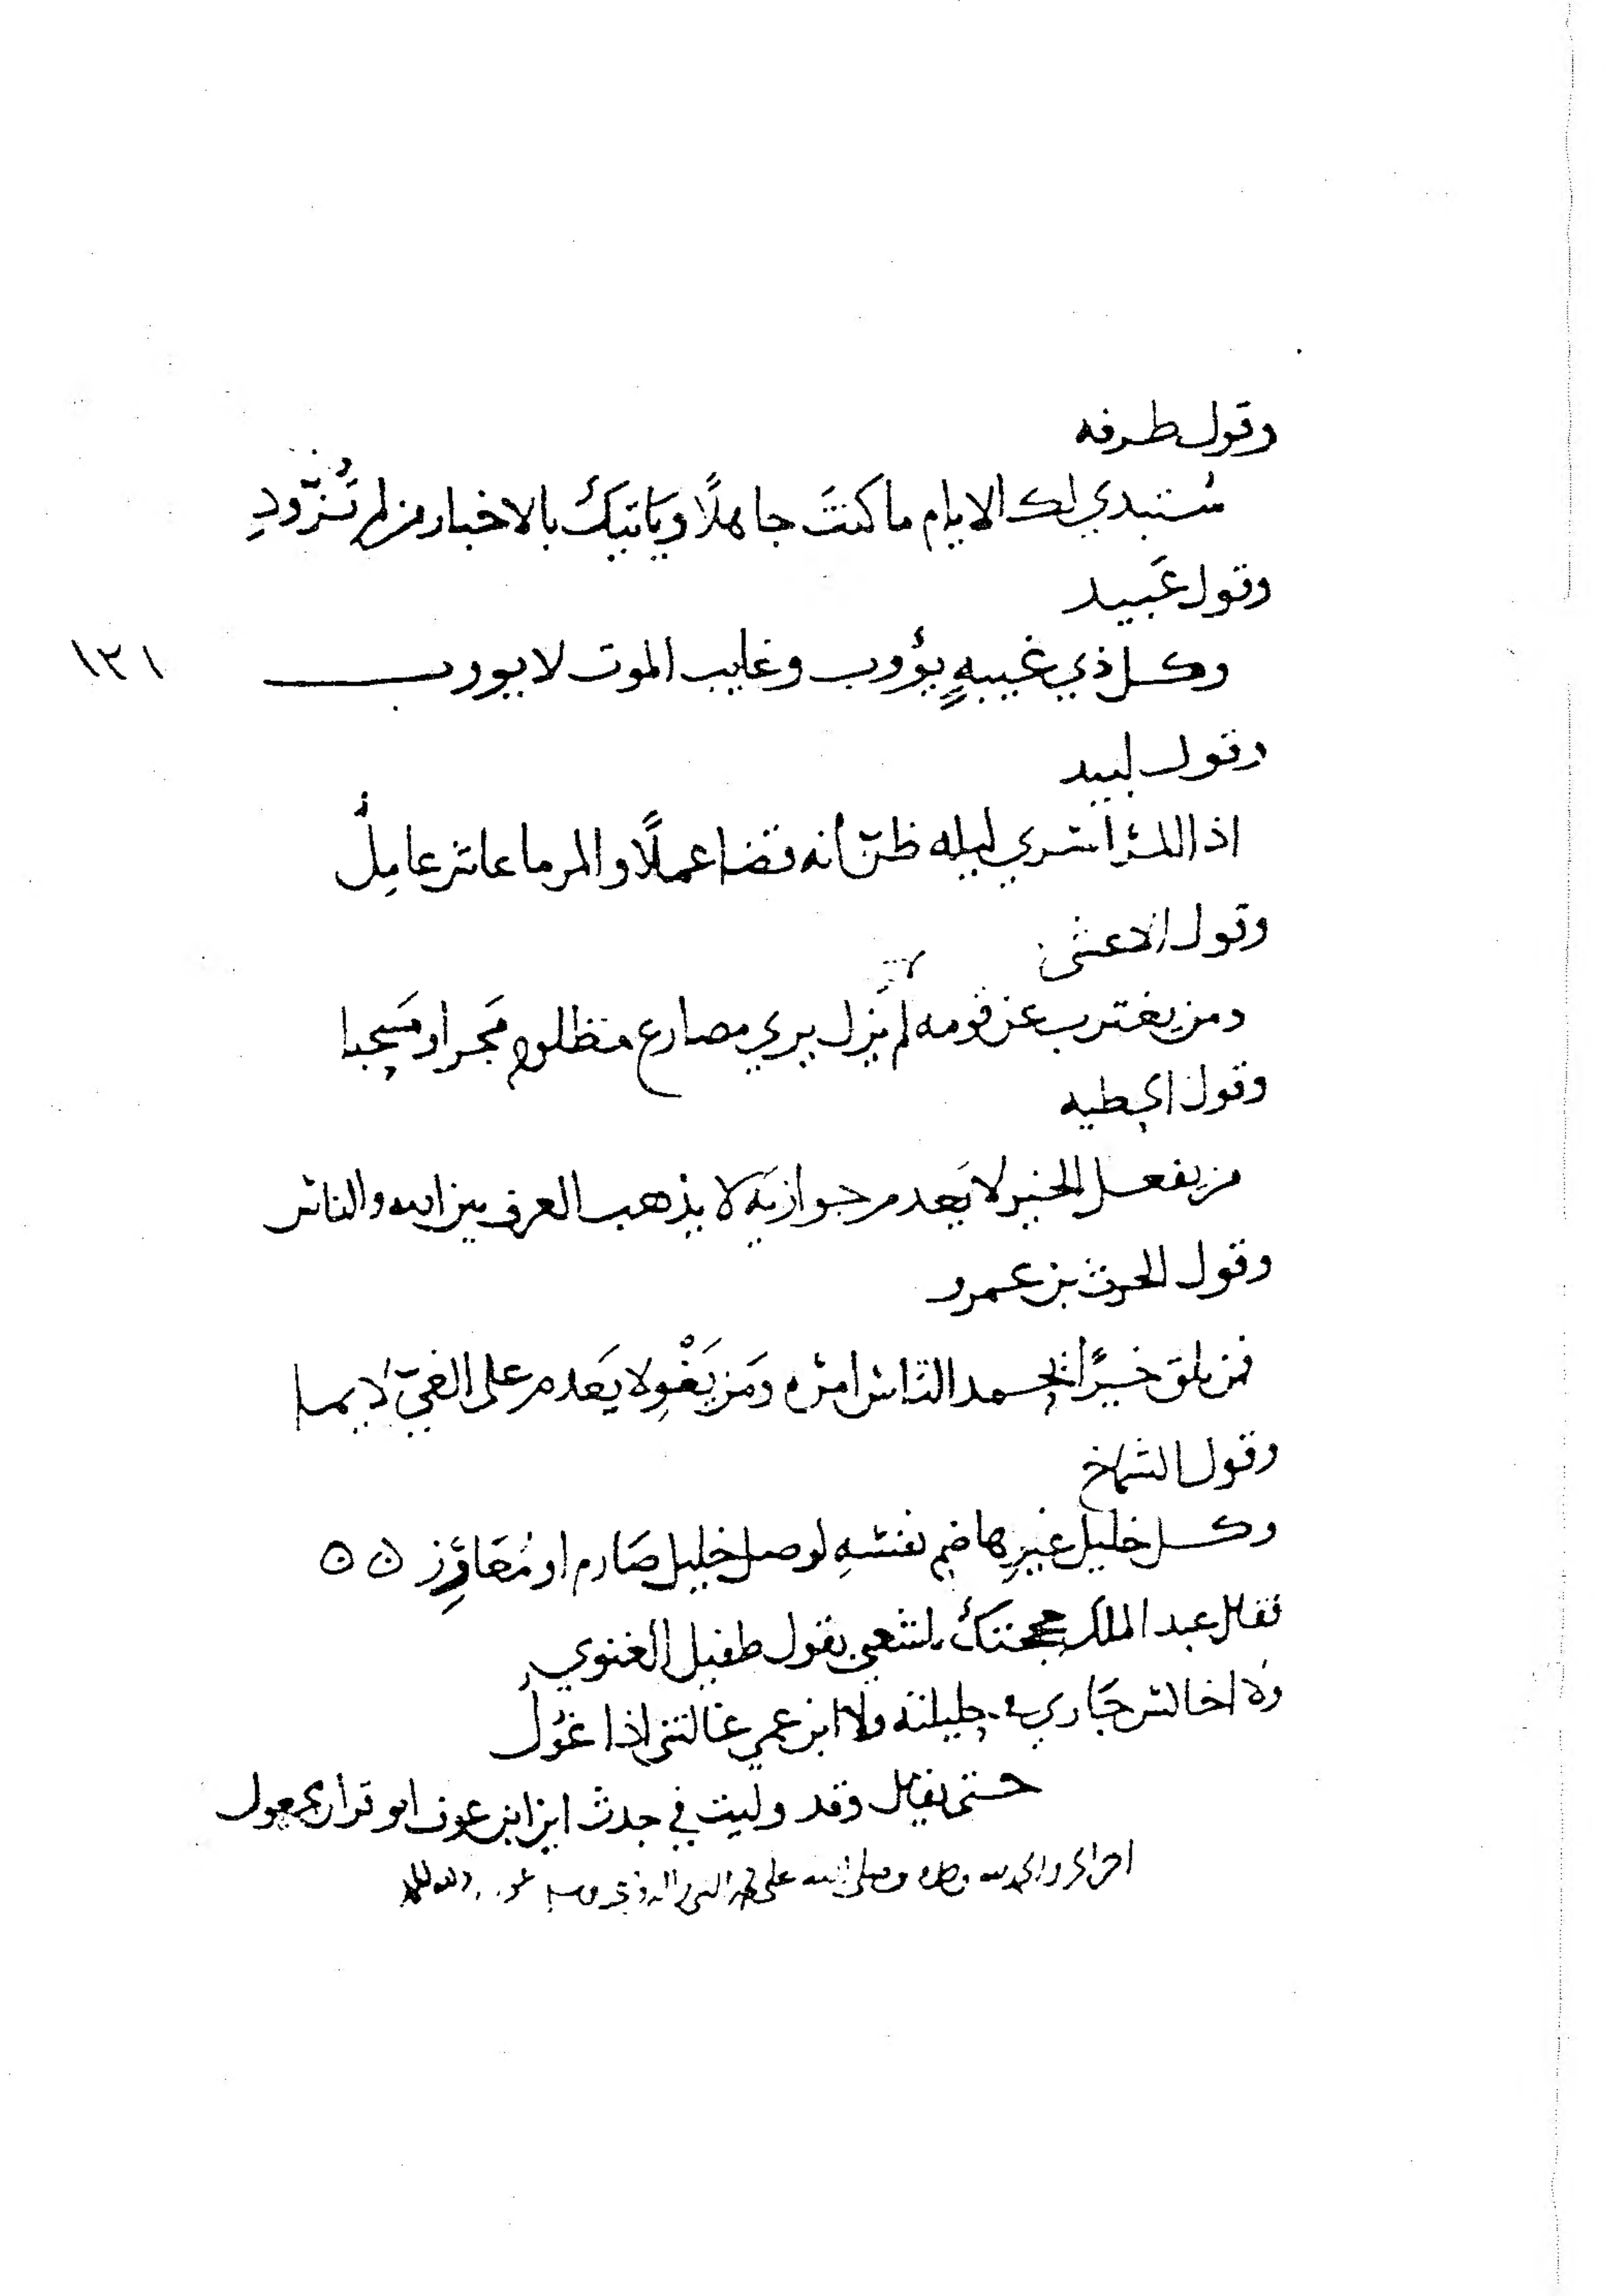 وقول طرفه
ستبدي لك الايام ما كنتَ جاهلًا وياتيكَ بالاخبار من لم تُزَوّدِ
وقول عَبيد
وكل ذي غيبهٍ يؤوب وغايب الموت لا يووب
١٢١
وقول لبيد
اذا المرُ اسري ليله ظنّ أنه قضا عملًا والمر ما عاش عامِلُ
وقول الاعشى
ومن يغترب عن قومه لم يَزل يري مصارع مظلومٍ مَجرا ومَسحبا
وقول الحطيه
من يفعل الخير لا يَعدم جوازيَه لا يذهب العرف بين الله والناس
وقول الحرث بن عمرو
فمن يلق خيرًا يحمد النّاس امرَه وَمَن يَغْوِ لا يَعدم على الغيّ لايما
وقول الشماخ
وكل خليل غيرِ هاضم نفسهِ لوصل خليل صَارم او مُعَاوِز ٥٥
فقال عبد الملك حججتكَ يا شعبي بقول طفيل الغنوي
ولا اخالس جَاري في حليلته ولا ابن عمي غالتني اذا غُوُل
حتى يقال وقد وليت في جدث اين ابن عوف ابو قران مجعول
وصلى الله على